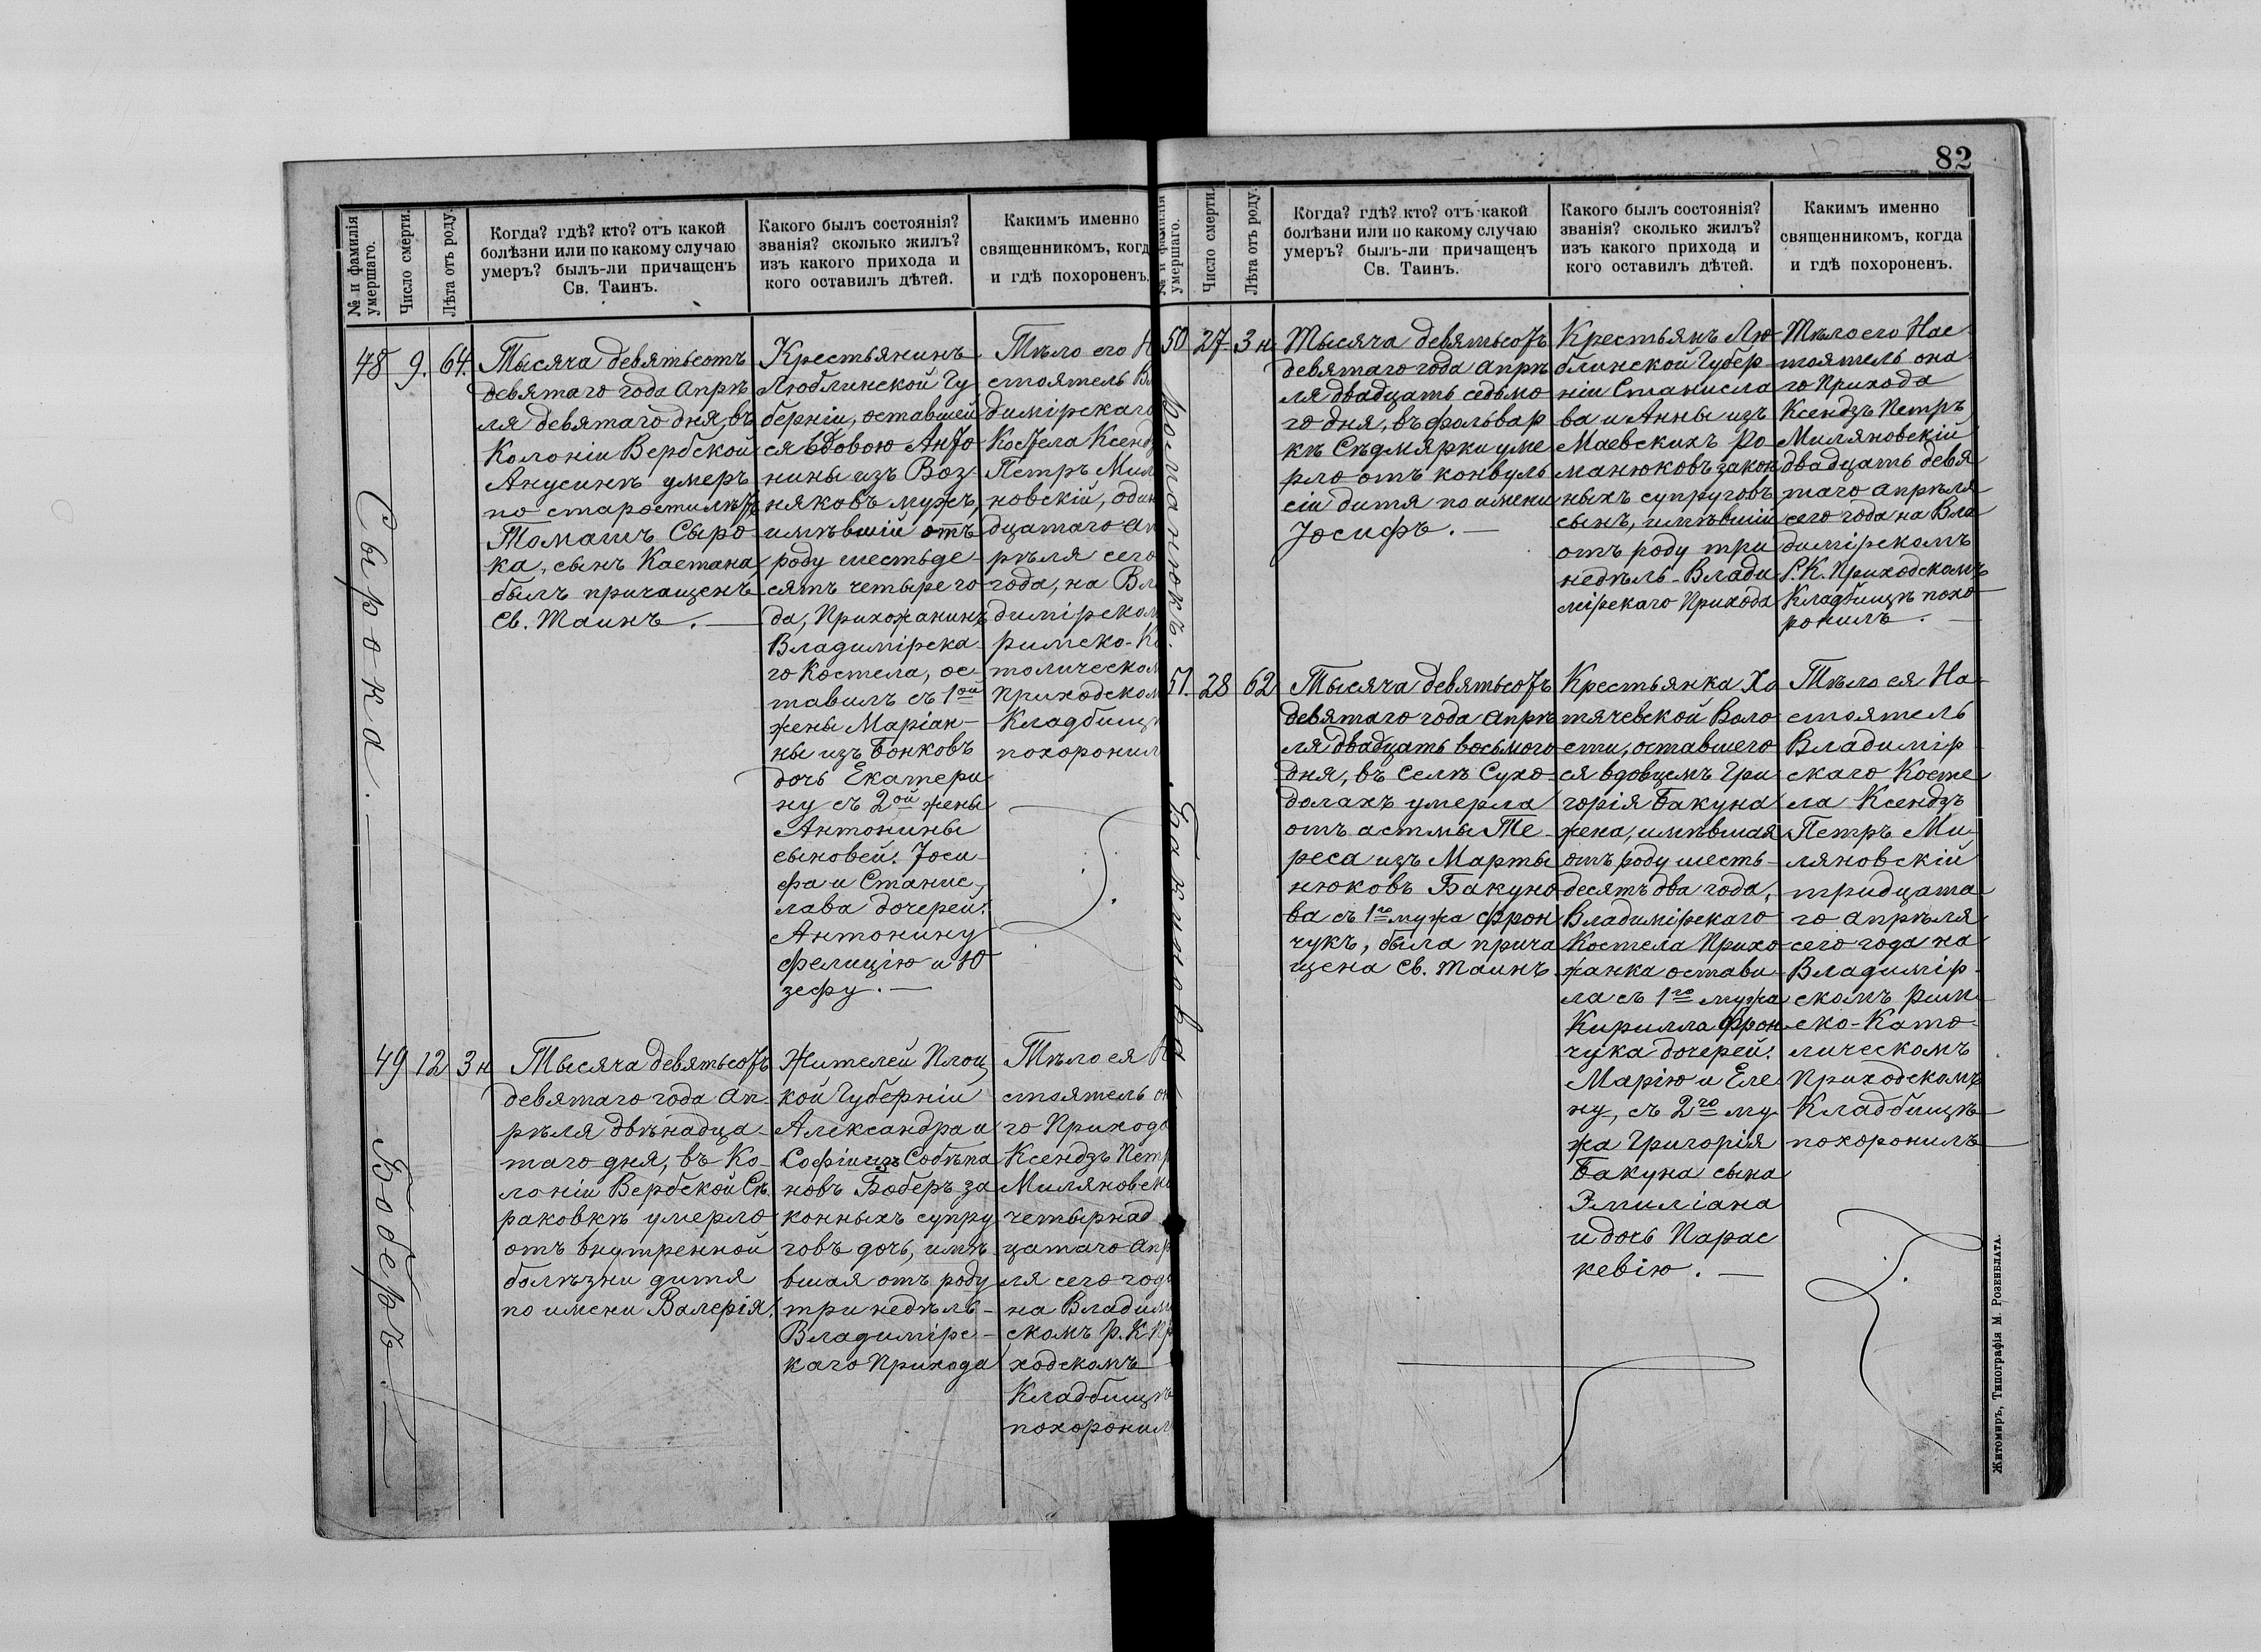 82
№ и фамилія
умершаго.
Число смерти.
Лѣта отъ роду.
Когда? гдѣ? кто? отъ какой
болѣзни или по какому случаю
умеръ? былъ-ли причащенъ
Св. Таинъ.
Какого былъ состоянія?
званія? сколько жилъ?
изъ какого прихода и
кого оставилъ дѣтей.
Каким​ъ именно
священникомъ, когд
и гдѣ похороненъ.
48
Сырока.
9.
64.
Тысяча девятьсотъ
девятаго года Апрѣ
ля девятаго дня, въ
Колоніи Вербской
Анусинѣ умеръ
по старости лѣтъ
Томашъ Сыро
ка, сынъ Каетана
былъ причащенъ
Св. Таинъ.
Крестьянинъ
Люблинской Гу
берніи, оставшей
ся вдовою Анто
нины изъ Воз
няковъ мужъ,
имѣвшій отъ
роду шестьде
сятъ четыре го
да, Прихожанинъ
Владимірска
го Костела, ос
тавилъ съ 1ой
жены Маріан
ны изъ Бонковъ
дочь Екатери
ну съ 2ой жены
Антонины
сыновей: Іоси
фа и Станис
лава дочерей:
Антонину
Фелицію и Ю
зефу.
Тѣло его Н
стоятель Вл
димірскаго
Костела Ксендз
Петръ Мил
новскій, один
дцатаго Ап
рѣля сего
года, на Вл
димірском
римско-Ка
толическом
Приходском
Кладбищѣ
похоронил
49
Боберъ.
12
3 н
Тысяча девятьсотъ
девятаго года Ап
рѣля двѣнадца
таго дня, въ Ко
лоніи Вербской Сѣ
раковкѣ умерло
отъ внутренной
болѣзни дитя
по имени Валерія.
Жителей Плоц
кой Губерніи
Александра и
Софіи изъ Собѣпа
новъ Боберъ за
конныхъ супру
говъ дочь, имѣ
вшая отъ роду
три недѣль
Владимірс
каго Прихода
Тѣло ея Н
стоятель он
го Прихода
Ксендзъ Петр
Миляновскі
четырнад
цатаго Апр
ля сего года
на Владимі
скомъ р. К. Пр
ходскомъ
Кладбищѣ
похоронил
№ и фамилія
умершаго.
Число смерти.
Лѣта отъ роду.
Когда? гдѣ? кто? отъ какой
болѣзни или по какому случаю
умеръ? былъ-ли причащенъ
Св. Таинъ.
Какого былъ состоянія?
званія? сколько жилъ?
изъ какого прихода и
кого оставилъ дѣтей.
Какимъ именно
священникомъ, когда
и гдѣ похороненъ.
50
Романюкъ.
27
3 н
Тысяча девятьсотъ
девятаго года Апрѣ
ля двадцать седьмо
го дня, въ фольвар
кѣ Сѣдмярки уме
рло отъ конвуль
сіи дитя по имени
Іосифъ.
Крестьянъ Лю
блинской Губер
ніи Станисла
ва и Анны изъ
Маевскихъ Ро
манюковъ закон
ныхъ супруговъ
сынъ, имѣвшій
отъ роду три
недѣль Влади
мірскаго Прихода
Тѣло его Нас
тоятель она
го Прихода
Ксендзъ Петръ
Миляновскій
двадцать девя
таго Апрѣля
сего года на Вла
димірскомъ
Р. К. Приходскомъ
Кладбищѣ похо
ронилъ.
51.
Бакунова
28
62
Тысяча девятьсотъ
девятаго года Апрѣ
ля двадцать восьмого
дня, въ селѣ Сухо
долахъ умерла
отъ астмы Те
реса изъ Марты
нюковъ Бакуно
ва съ 1го мужа Фрон
чукъ, была прича
щена Св. Таинъ
Крестьянка Хо
тячевской Воло
сти, оставшего
ся вдовцемъ Гри
горія Бакуна
жена, имѣвшая
отъ роду шесть
десятъ два года,
Владимірскаго
Костела Прихо
жанка остави
ла съ 1го мужа
Кирилла Фрон
чука дочерей:
Марію и Еле
ну, съ 2го му
жа Григорія
Бакуна сына
Эмиліана
и дочь Парас
кевію.
Тѣло ея На
стоятель
Владимір
скаго Косте
ла Ксендзъ
Петръ Ми
ляновскій
тридцата
го Апрѣля
сего года на
Владимір
скомъ Рим
ско-Като
лическомъ
Приходскомъ
Кладбищѣ
похоронилъ
Житомиръ, Типографія М. Розенблата.